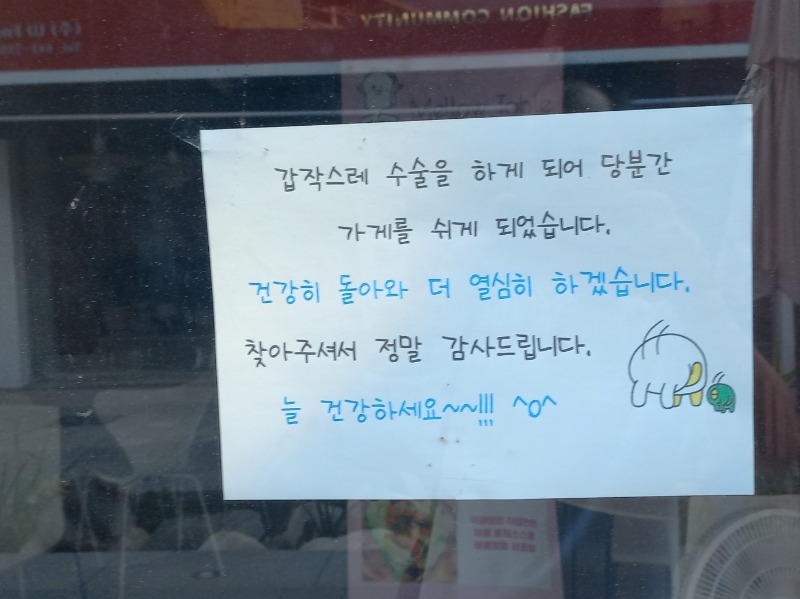 FASHION COMMUNITY
갑작스레 수술을 하게 되어 당분간
가게를 쉬게 되었습니다.
건강히 돌아와 더 열심히 하겠습니다.
찾아주셔서 정말 감사드립니다.
늘 건강하세요~~!!! ^o^